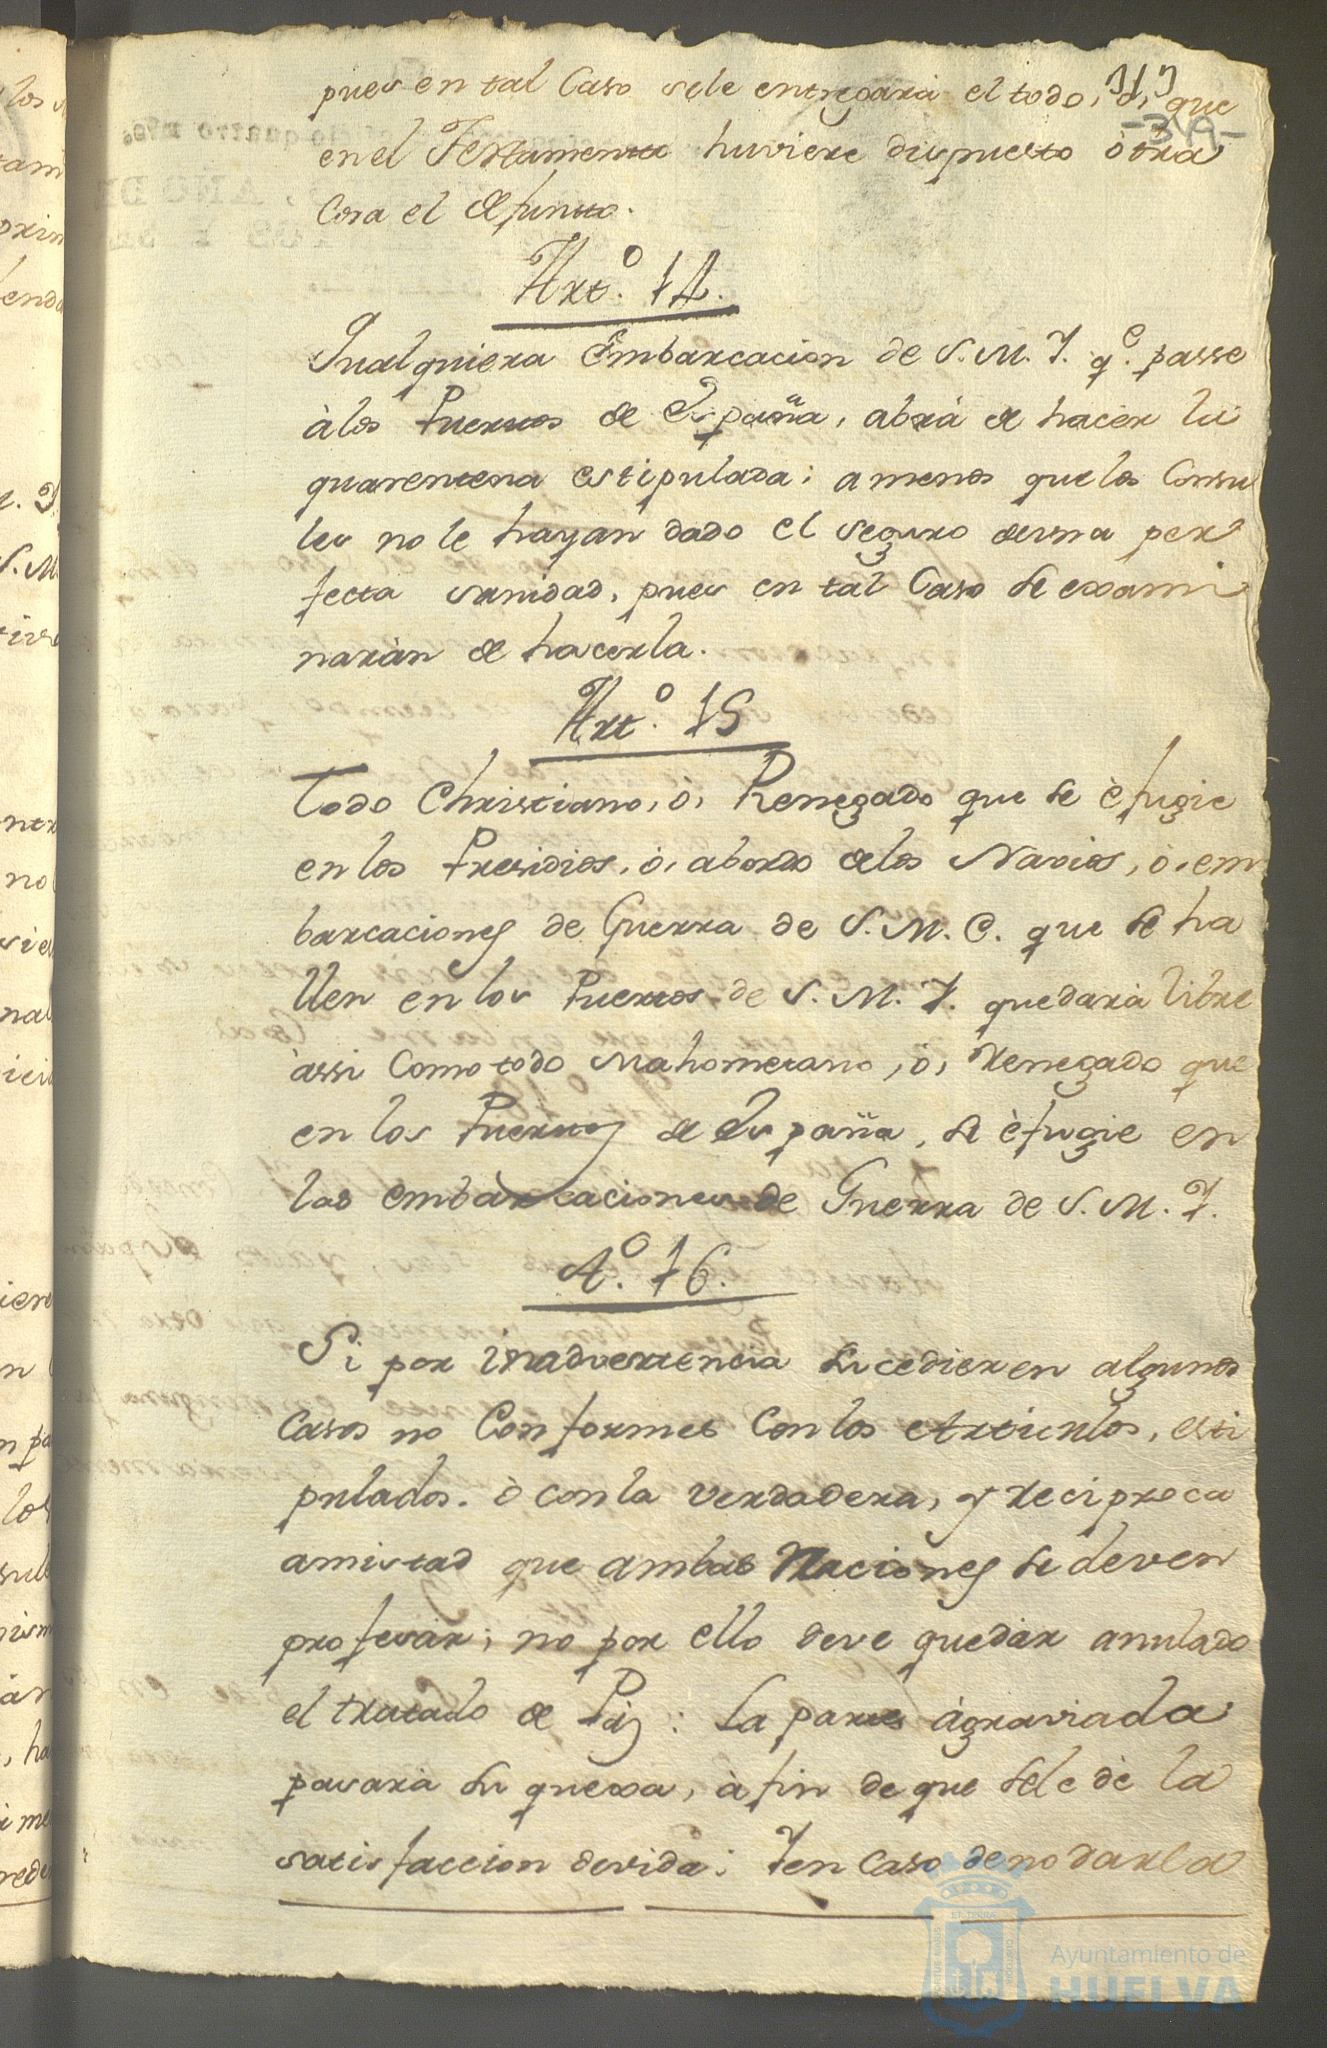 pues en tal Caso sele entregara el todo, ò, que
-319-
en el Testamento huviere dispuesto òtra
Cosa el defunto.
Art.º 14.
Qualquiera Embarcacion de S. M. I. q.e passe
àlos Puertos de España, abrà de hacer la
quarentena estipulada; amenos que los Consu
les no le hayan dado el seguro deuna per
fecta sanidad, pues en tal Caso se exàmi
naràn de hacerla.
Art.º 15
Todo Christiano, ò, Renegado que se èfugie
en los Presidios, ò, abordo delos Navios, ò, em
barcaciones de Guerra de S. M. C. que se ha
llen en los Puertos de S. M. I. quedarà libre
àssi Como todo Mahometano, ò, Renegado que
en los Puertos de España, se èfugie en
las embàrcaciones de Guerra de S. M. I.
A.º 16.
Si por inadvertencia sucedieren algunos
Casos no Conformes Con los Articulos, esti
pulados. ò con la verdadera, y reciproca
amistad que ambas Naciones se deven
profesàr; no por ello deve quedàr anulado
el tratado de Pàz: La partes àgraviada
pasarà su quexa, à fin de que sele dè la
satisfaccion devida: Ien Caso de no darla
Ayuntamiento de
HUELVA